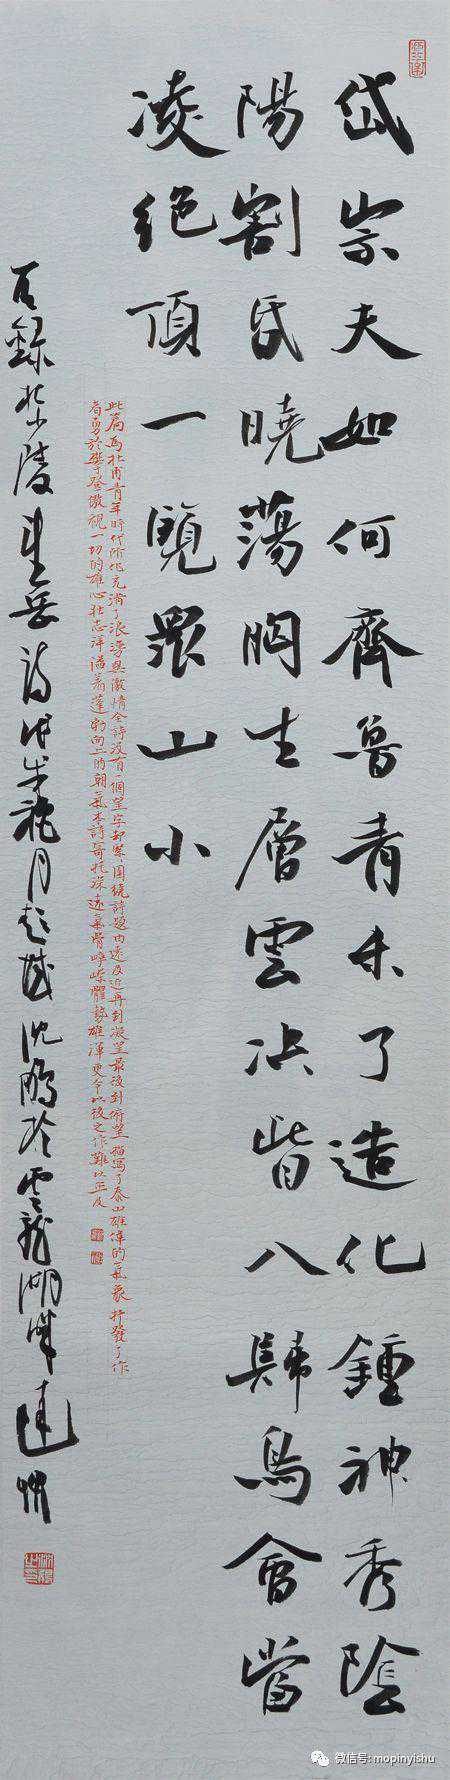 岱宗夫如何齊魯青未了造化鍾神秀陰
陽割昏曉蕩胸生層雲决眥入歸鳥會當
凌絶頂一覽眾山小
此篇為杜甫青年時代所作充满了浪漫與激情全詩没有一個望字却緊緊圍繞詩題由遠及近再到凝望最後到俯望描寫了泰山雄偉的氣象抒發了作
者勇於攀登傲視一切的雄心壯志洋溢着蓬勃向上的朝氣本詩寄托深遠氣骨崢嶸體勢雄渾更令以後之作難以企及
右録杜少陵望岳詩於雲龍湖畔
微信号: mopinyishu